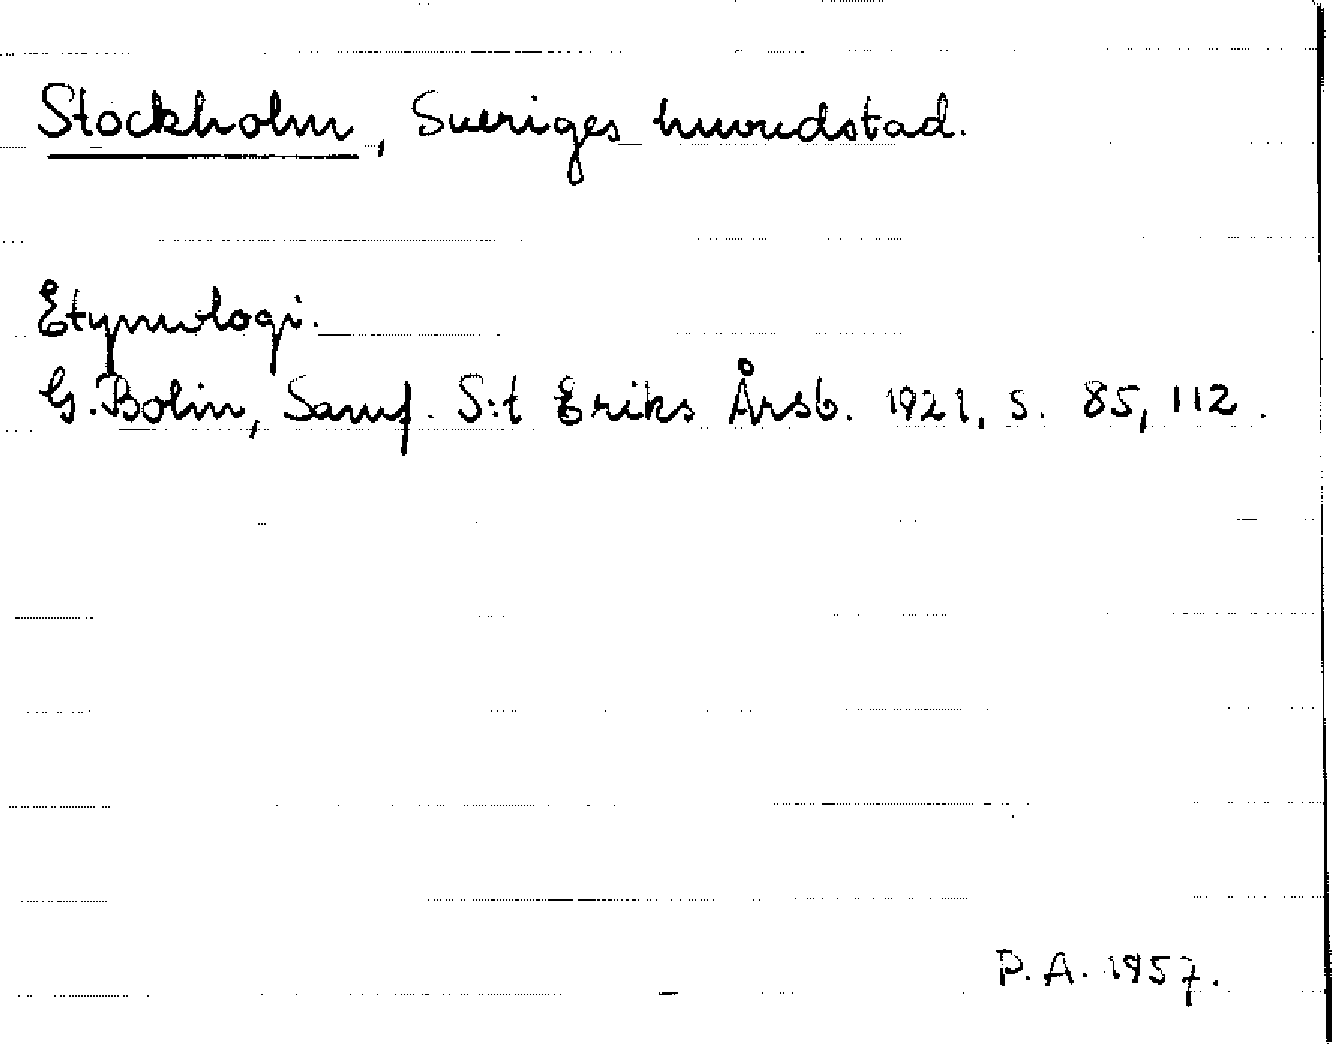 Stockholm, Sveriges huvudstad.
Etymologi.
G. Bolin, Samf. S:t Eriks Årsb. 1921, s. 85, 112.
P. A. 1957.